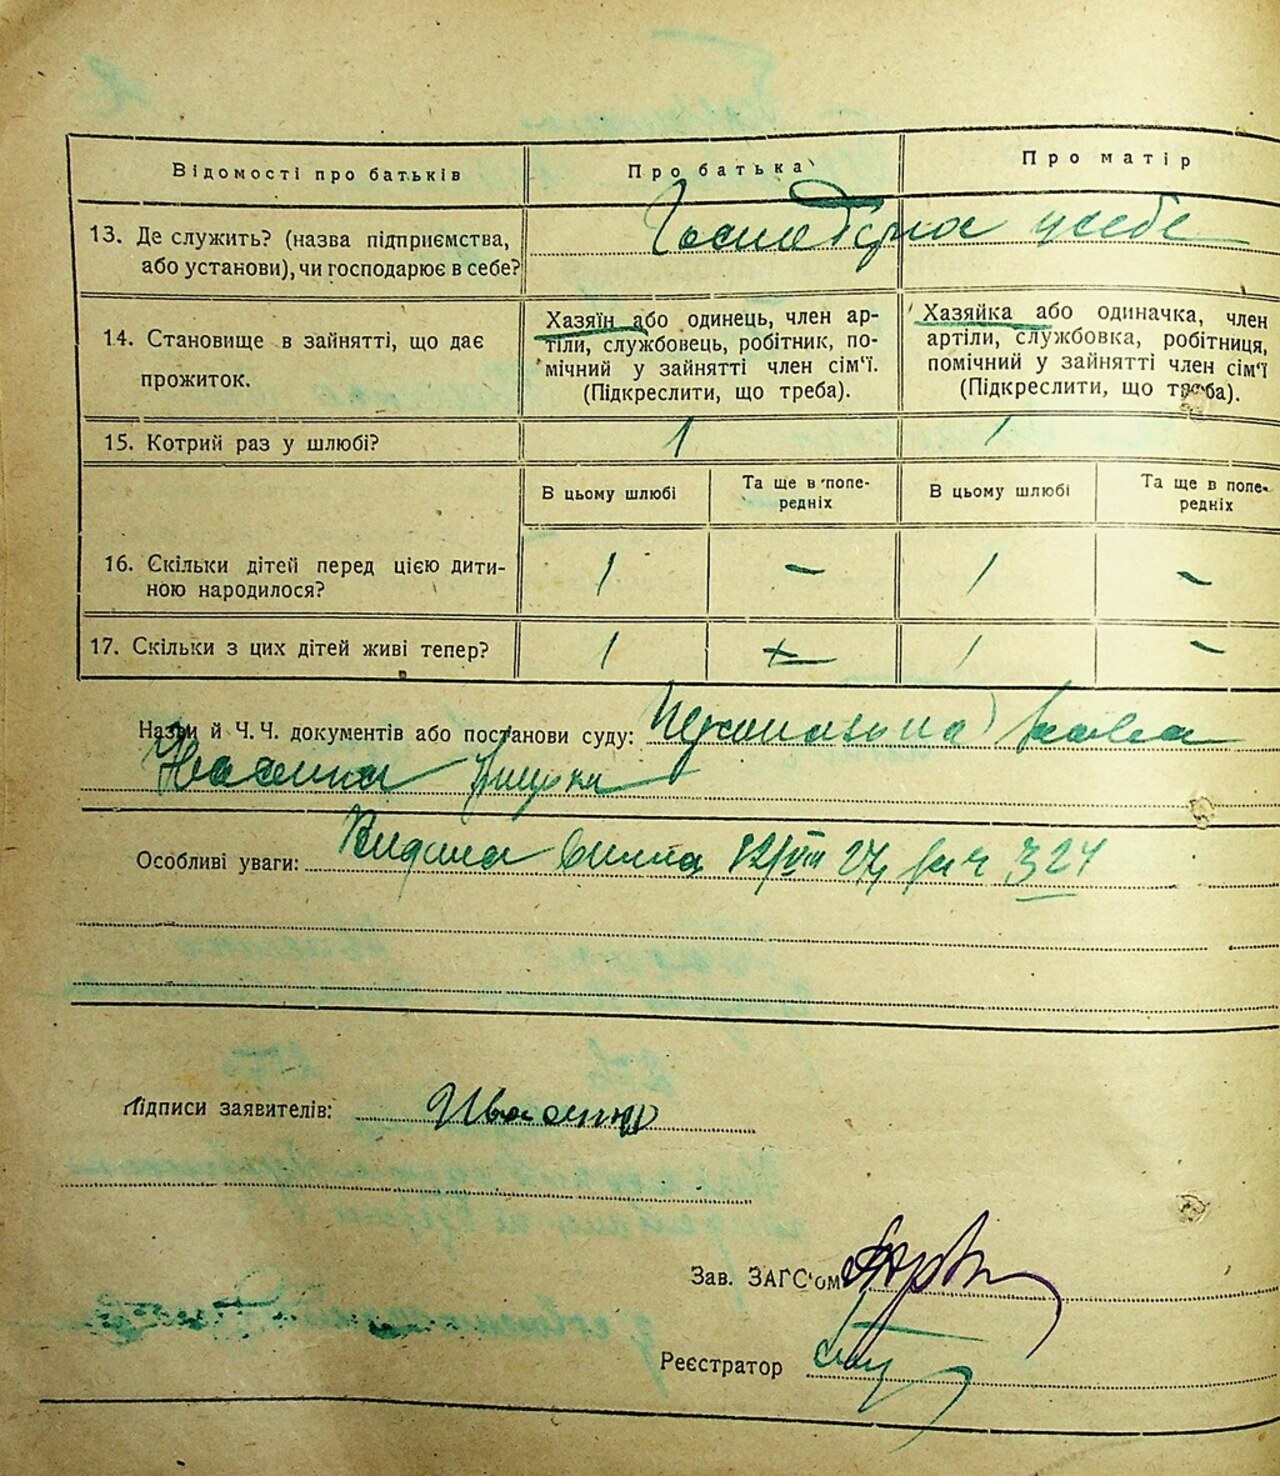 Відомості про батьків
Про батька
Про матір
13. Де служить? (назва підприємства,
або установи), чи господарює в себе?
14. Становище в зайнятті, що дає
прожиток.
Хазяїн або одинець, член ар-
тіли, службовець, робітник, по-
мічний у зайнятті член сім'ї.
(Підкреслити, що треба).
Хазяйка або одиначка, член
артіли, службовка, робітниця,
помічний у зайнятті член сім'ї
(Підкреслити, що треба).
15. Котрий раз у шлюбі?
1
1
В цьому шлюбі
Та ще в попе-
редніх
В цьому шлюбі
Та ще в попе-
редніх
16. Скільки дітей перед цією дити-
ною народилося?
1
-
1
-
17. Скільки з цих дітей живі тепер?
1
1
-
Назви й Ч. Ч. документів або постанови суду:
Особливі уваги: Видана 12/VIII 27 324
Підписи заявителів:
Зав. ЗАГС'ом
Реєстратор